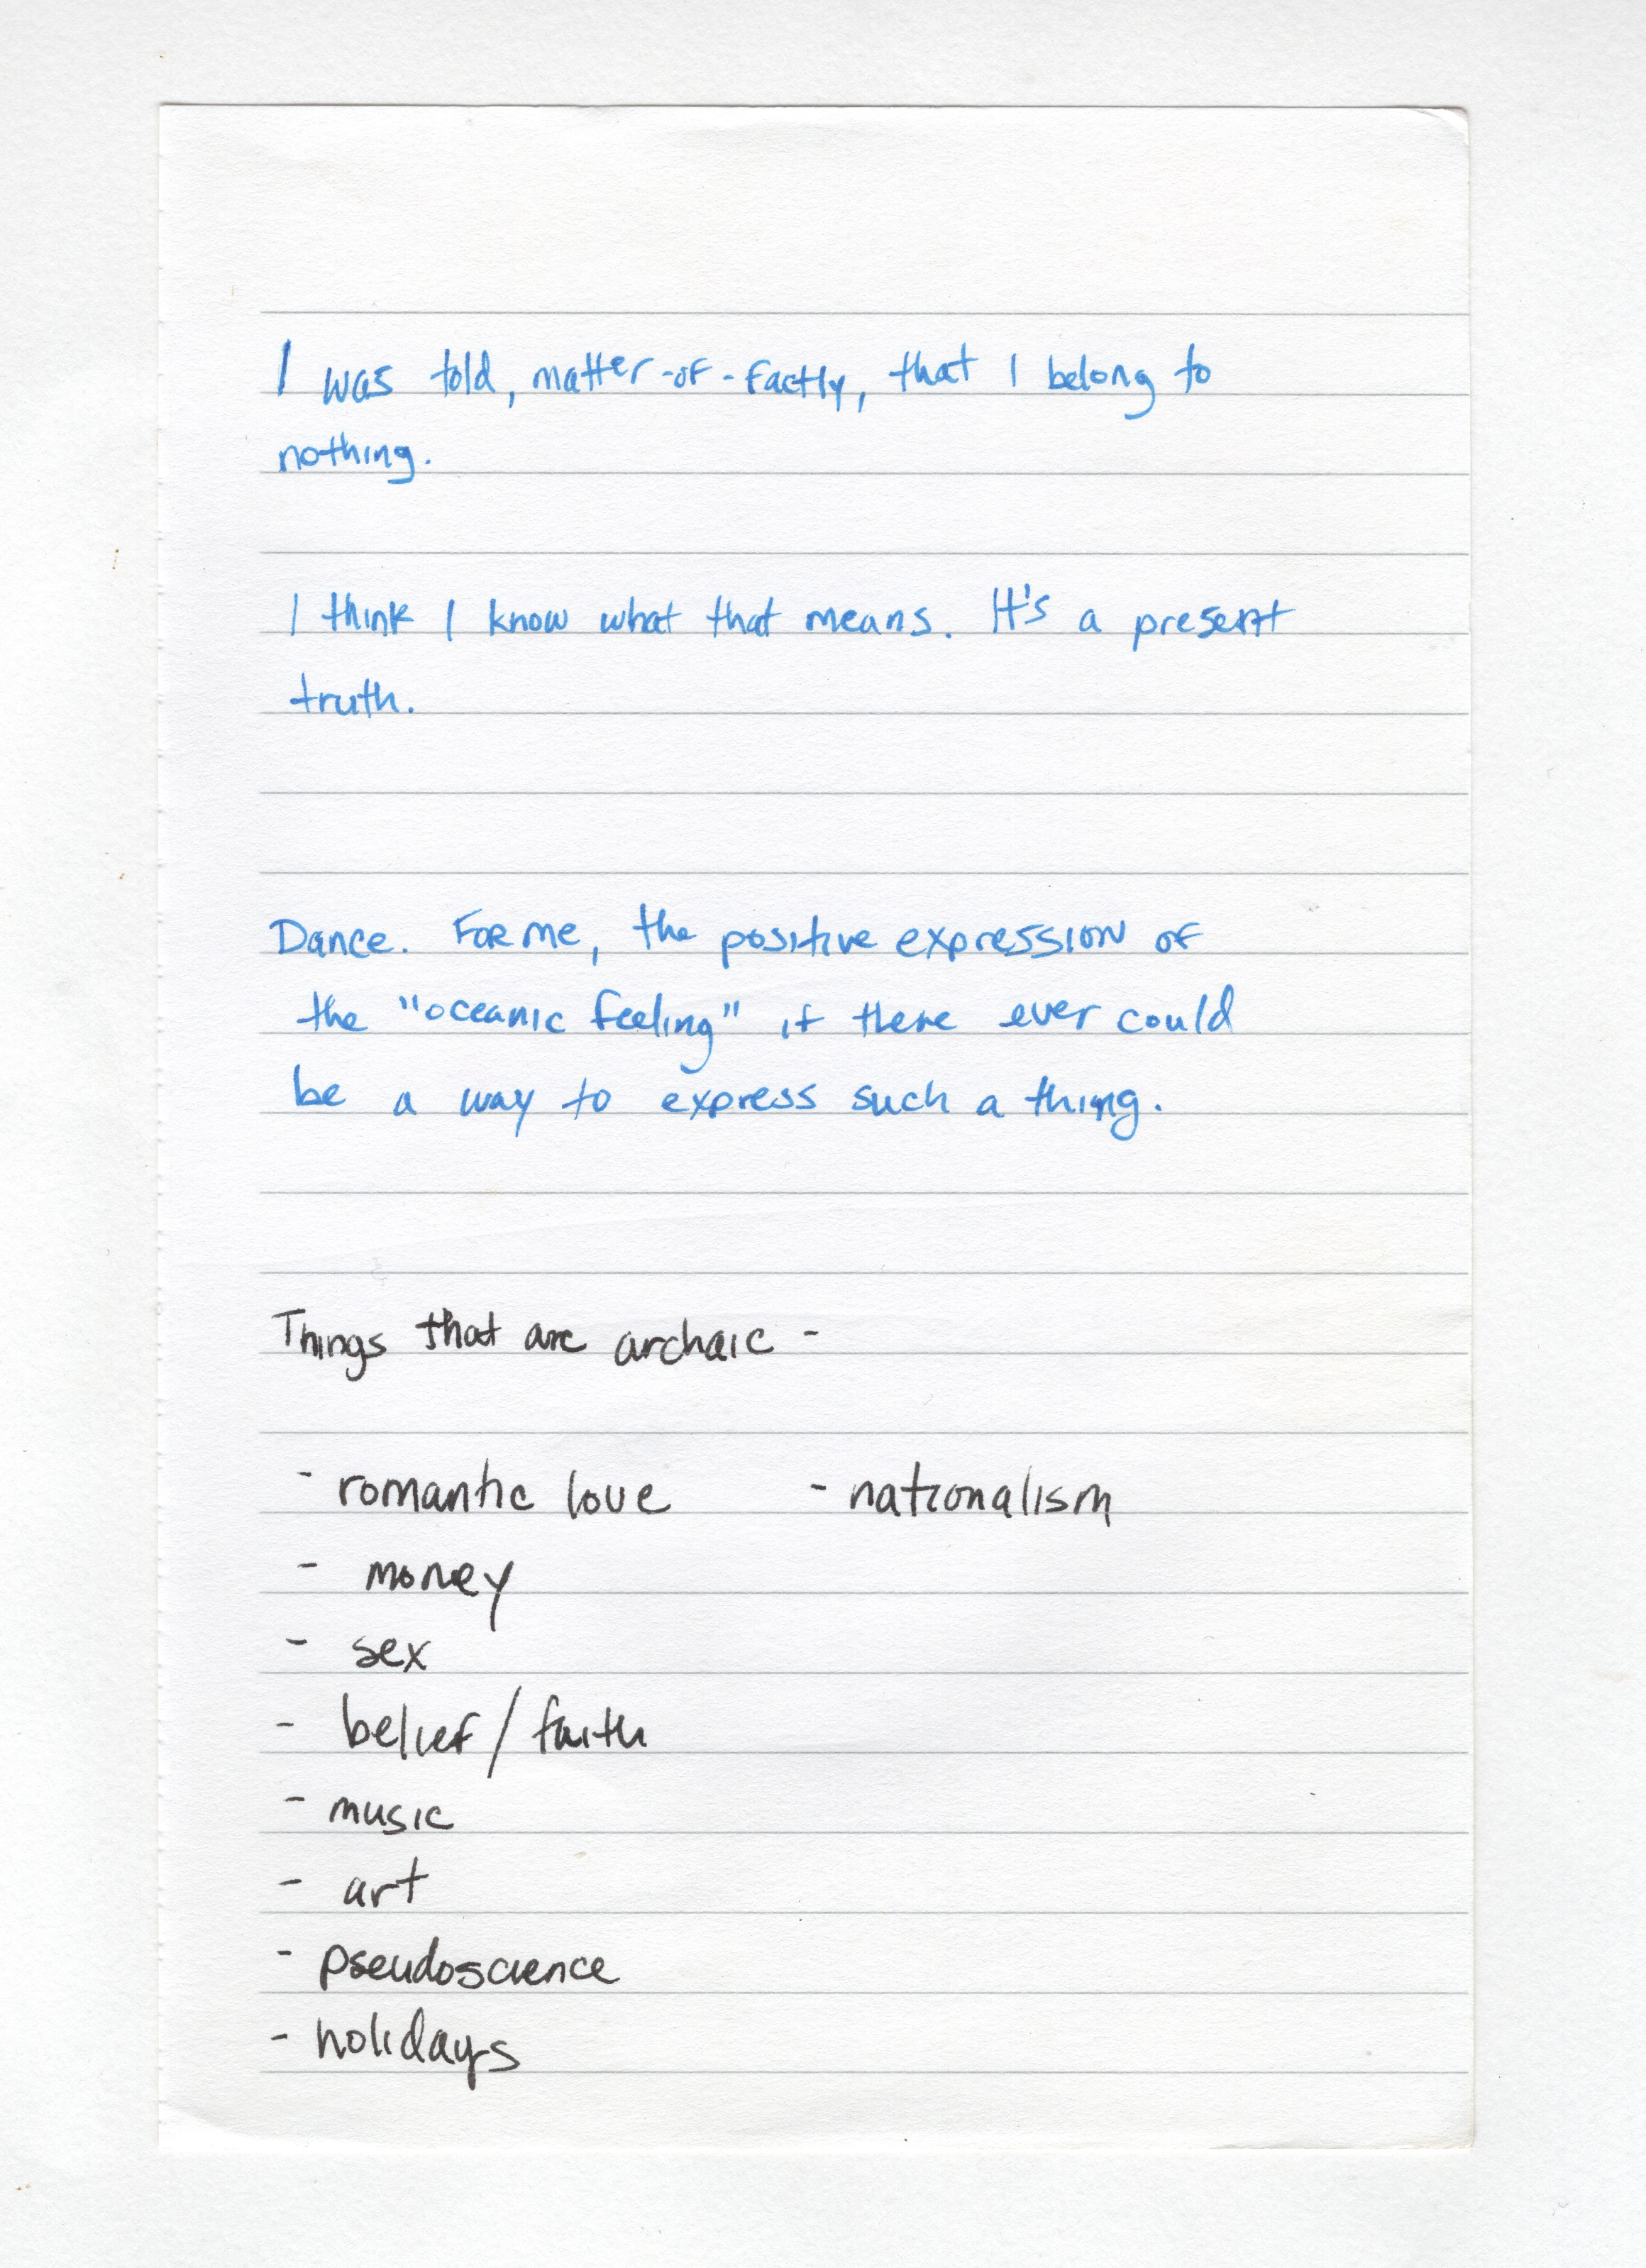 I was told, matter-of-factly, that I belong to
nothing.
I think I know what that means. It's a present
truth.
Dance. For me, the positive expression of
the "oceanic feeling" if there ever could
be a way to express such a thing.
Things that are archaic -
- romantic love - nationalism
- money
- sex
- belief / faith
- music
- art
- pseudoscience
- holidays